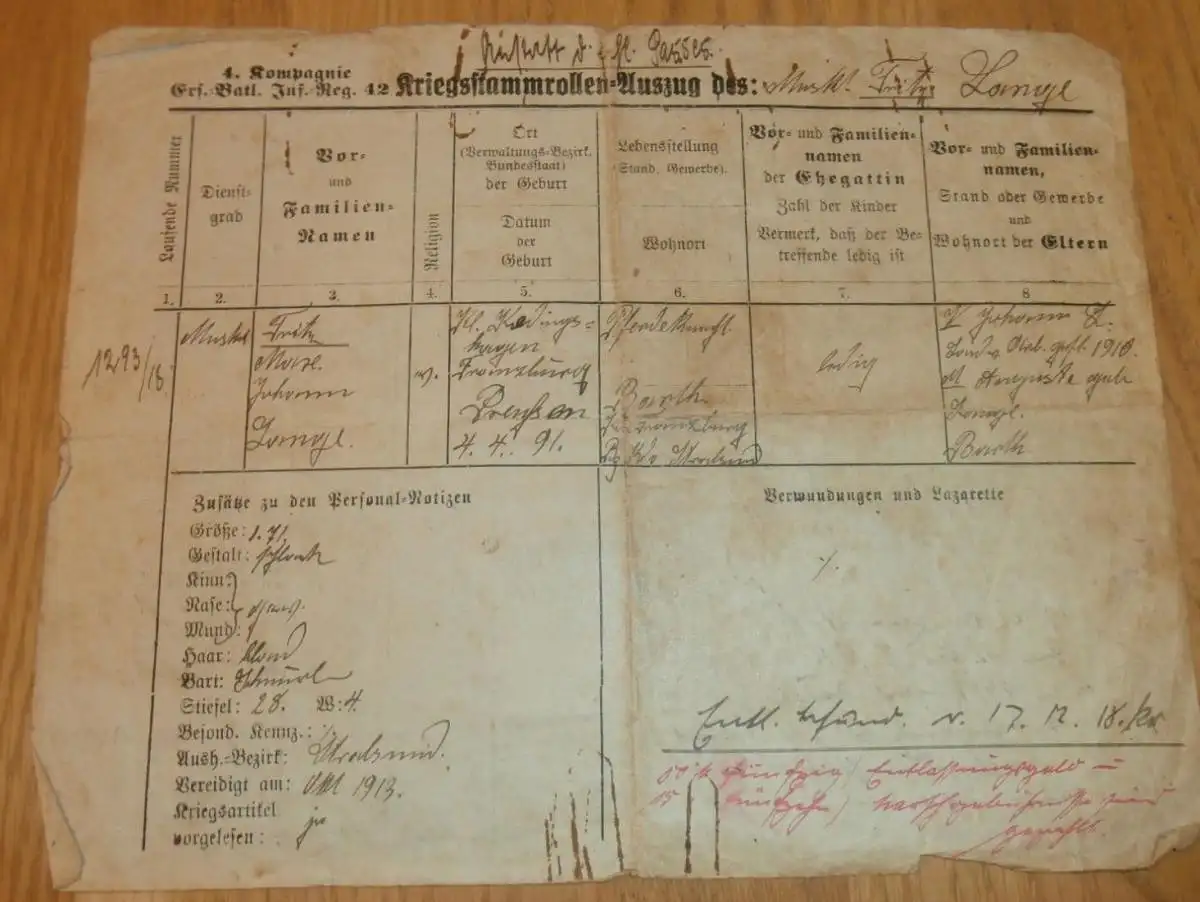 Anstatt d. Mil. Passes.
4. Kompagnie
Ers.-Batl. Inf.-Reg. 42 Kriegsstammrollen-Auszug des: Muskt. Fritz Lange
Laufende Nummer
Dienst-
grad
Vor-
und
Familien-
Namen
Religion
Ort
(Verwaltungs-Bezirk,
Bundesstaat)
der Geburt
Datum
der
Geburt
Lebensstellung
(Stand, Gewerbe).
Wohnort
Vor- und Familien-
namen
der Ehegattin
Zahl der Kinder
Vermerk, daß der Be-
treffende ledig ist
Vor- und Familien-
namen,
Stand oder Gewerbe
und
Wohnort der Eltern
1. 2. 3. 4. 5. 6. 7. 8
1293/18.
Muskt
Fritz
Johann
Lange.
ev.
Kl. Kedings-
hagen
Franzburg
Preußen
4. 4. 91.
Pferdeknecht
Barth
Franzburg
Stralsund
ledig
V Johann L.
gest. 1910.
M Auguste geb
Lange.
Barth
Zusätze zu den Personal-Notizen
Größe: 1.71.
Gestalt: schlank
Kinn:
Nase: gew.
Mund:
Haar: blond
Bart: Schnurb
Stiefel: 28. W: 4.
Besond. Kennz.: ./.
Aush.-Bezirk: Stralsund.
Vereidigt am: Okt 1913.
Kriegsartikel
vorgelesen: ja
Verwundungen und Lazarette
./.
Entl. 17. 12. 18.
50 M (fünfzig) Entlassungsgeld u
15 (fünfzehn) Marschgebührnisse sind
gezahlt.